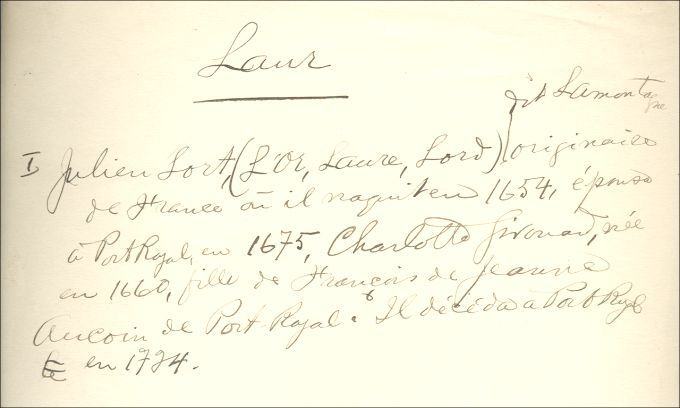 Laur
dit Lamontagne
I Julien Lort, (L'Or, Laure, Lord) originaire
de France où il naquit en 1654, épousa
à Port Royal, en 1675, Charlotte Girouard, née
en 1660, fille de François de Jeanne
Aucoin de Port-Royal. Il décéda à Port Royal
en 1724.